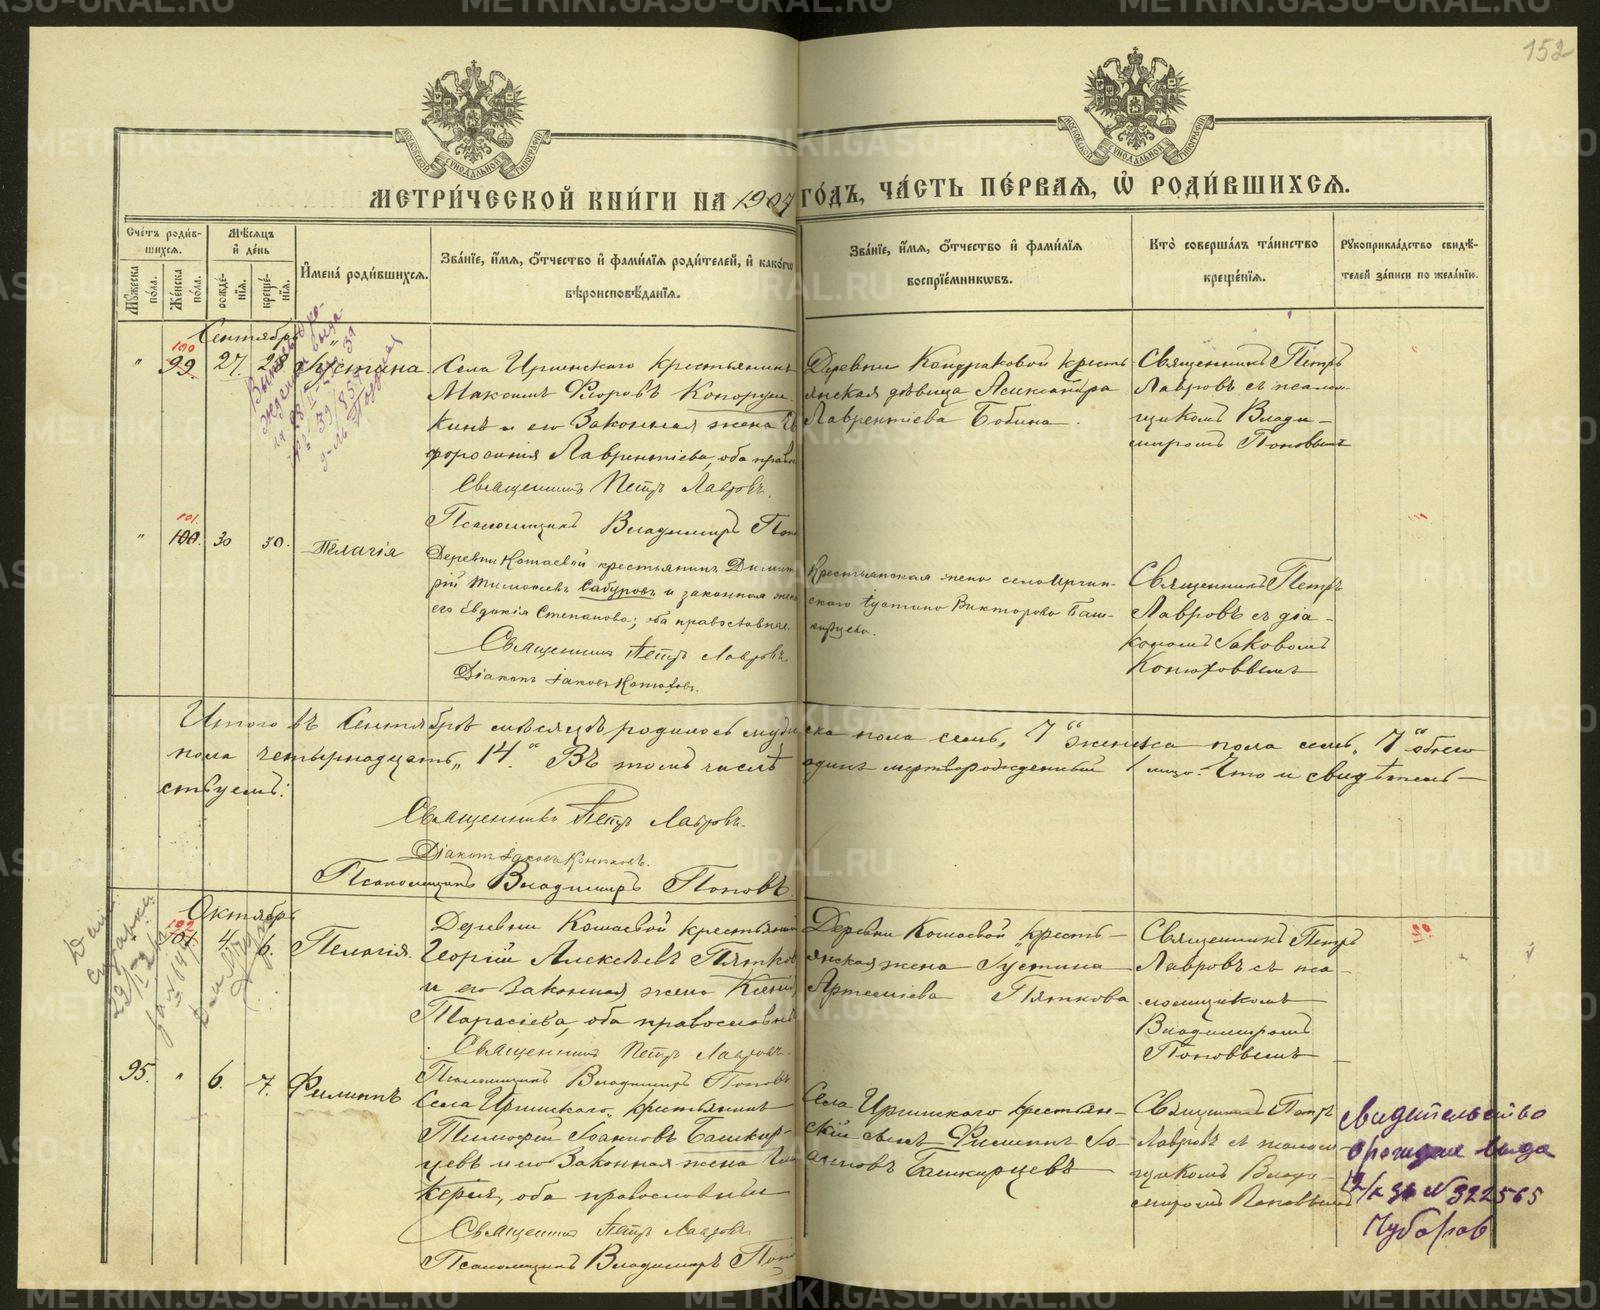 152
МЕТРИ́ЧЕСКОЙ КНИ́ГИ НА 1907 ГО́ДЪ, ЧА́СТЬ ПЕ́РВАЯ, Ѡ҆ РОДИ́ВШИХСЯ.
Сче́тъ роди́в-
шихся.
Мꙋ́жеска по́ла.
Же́нска по́ла.
Мѣ́сяцъ и҆ де́нь
рожде́-
нїя.
креще́-
нїя.
И҆мена̀ роди́вшихся.
Зва́нїе, и҆́мя, ѻ҆́тчество и҆ фами́лїя роди́телей, и҆ како́гѡ
вѣроисповѣ́данїя.
Зва́нїе, и҆́мя, ѻ҆́тчество и҆ фами́лїя
воспрїе́мникѡвъ.
Кто̀ соверша́лъ та́инство
креще́нїя.
Рꙋкоприкла́дство свидѣ́-
телей за́писи по жела́нїю.
Сентябрь
100
" 99. 27. 28. Іустина
Села Иргинскаго крестьянинъ
Максимъ Ѳ
кинъ и его законная жена
Лаврентіева, оба прав
Священникъ Петръ Лавровъ.
Псаломщикъ Владимиръ Поп
Деревни Кондраковой кресть-
янская дѣвица Александра
Лаврентіева Бобина.
Священникъ Петръ
Лавровъ съ псалом-
щикомъ Влади-
миромъ Поповымъ
101.
" 100. 30 30. Пелагія
Деревни Кошаевой крестьянинъ Димит
рій Тимоѳеевъ Сабуровъ и законная жена
его Евдокія Степановна; оба православные.
Священникъ Петръ Лавровъ.
Діаконъ Іаковъ Конюховъ.
Крестьянская жена села Иргин-
скаго Іустина Викторова Баш-
кирцева.
Священникъ Петръ
Лавровъ съ діа-
кономъ Іаковомъ
Конюховымъ
Итого въ Сентябрѣ мѣсяцѣ родилось мужеска пола семь „7“ женска пола семь „7“ обоего
пола четырнадцать „14“. Въ томъ числѣ одинъ мертворожденный 1 лицо. Что и свидѣтель-
ствуемъ:
Священникъ Петръ Лавровъ.
Діаконъ Іаковъ Конюховъ.
Псаломщикъ Владимиръ Поповъ
Октябрь
102
101 4. 6. Пелагія.
Деревни Кошаевой крестьянинъ
Георгій Алексѣевъ Пятков
и его законная жена
Тарасіева, оба православны
Священникъ Петръ Лавровъ.
Псаломщикъ Владимиръ Поповъ
Деревни Кошаевой кресть-
янская жена Іустина
Артеміева Пяткова
Священникъ Петръ
Лавровъ съ пса-
ломщикомъ
Владимиромъ
Поповымъ
95. " 6. 7. Филиппъ
Села Иргинскаго крестьянинъ
Тимоѳей Іоанновъ Башкир-
цевъ и его законная жена Гли
керія, оба православныи
Священникъ Петръ Лавровъ
Псаломщикъ Владимиръ Поп
Села Иргинскаго крестьян-
скій сынъ Филиппъ Іо-
анновъ Башкирцевъ
Священникъ Петръ
Лавровъ съ псалом-
щикомъ Влади-
миромъ Поповымъ
Свидетельство
о рождении выда
N 322565
Чубаров